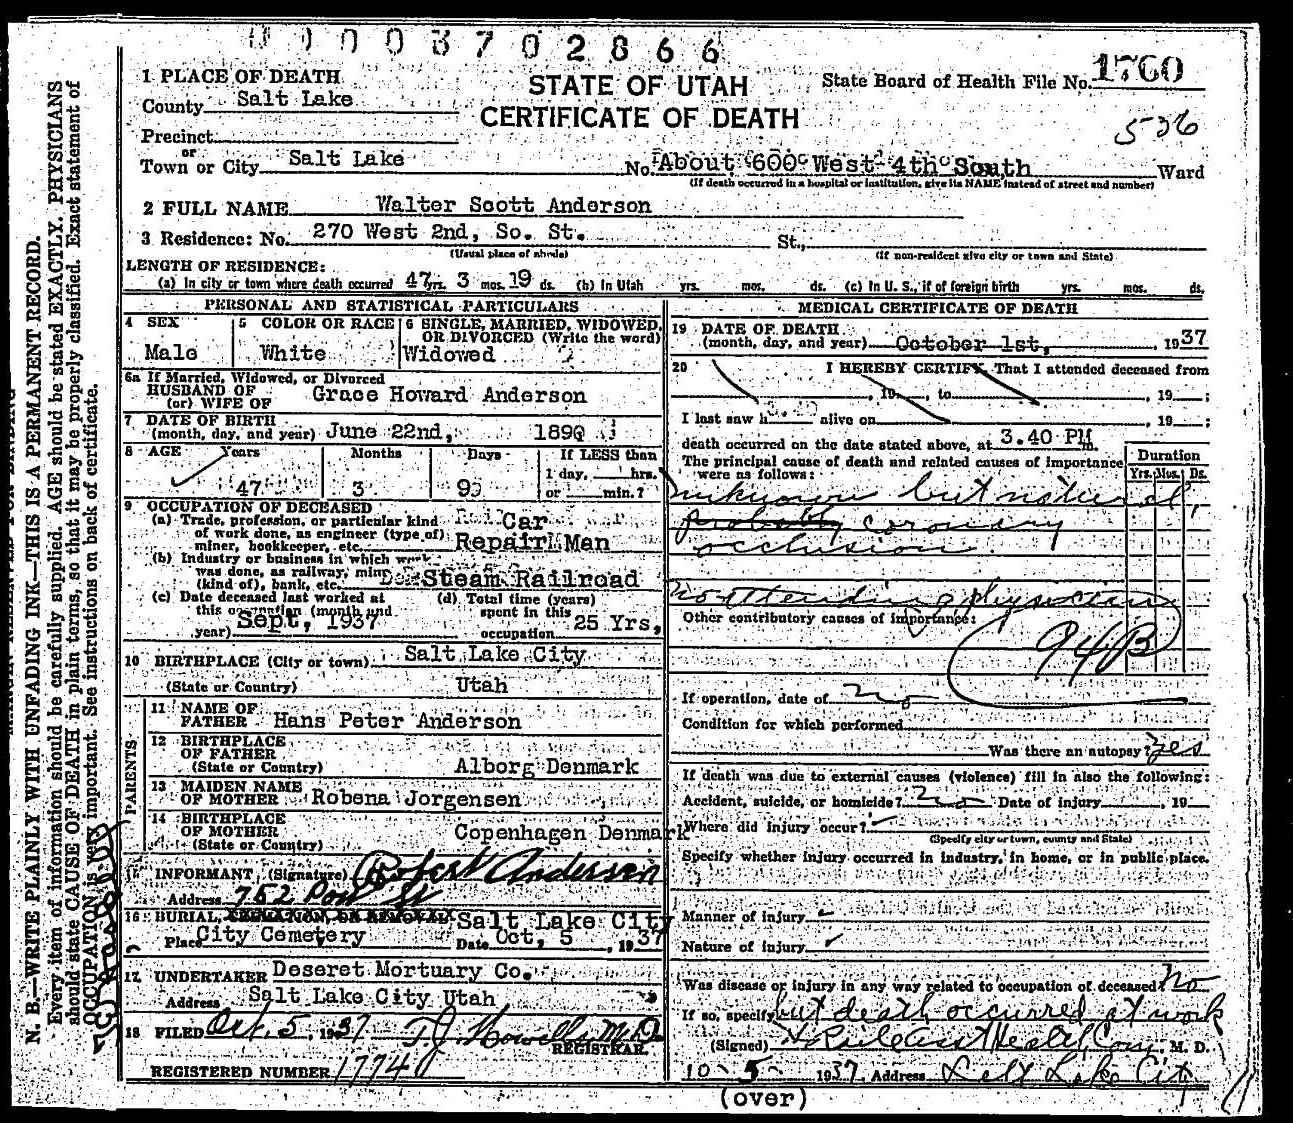 0003702866
1 PLACE OF DEATH
STATE OF UTAH
CERTIFICATE OF DEATH
State Board of Health File No. 1760
County Salt Lake
536
Precinct
or
Town or City Salt Lake No. About 600 West 4th South Ward
(If death occurred in a hospital or institution, give its NAME instead of street and number)
2 FULL NAME Walter Scott Anderson
3 Residence: No. 270 West 2nd, So. St. St.,
(Usual place of abode) (If non-resident give city or town and State)
LENGTH OF RESIDENCE:
(a) In city or town where death occurred 47 yrs. 3 mos. 19 ds. (b) In Utah yrs. mos. ds. (c) In U. S., if of foreign birth yrs. mos. ds.
PERSONAL AND STATISTICAL PARTICULARS
4 SEX Male
5 COLOR OR RACE White
6 SINGLE, MARRIED, WIDOWED, OR DIVORCED (Write the word) Widowed
6a If Married, Widowed, or Divorced
HUSBAND OF
(or) WIFE OF Grace Howard Anderson
7 DATE OF BIRTH
(month, day, and year) June 22nd, 1890
8 AGE Years Months Days If LESS than
1 day, hrs.
47 3 9 or min.?
9 OCCUPATION OF DECEASED
(a) Trade, profession, or particular kind of work done, as engineer (type of) miner, bookkeeper, etc. Car Repair Man
(b) Industry or business in which work was done, as railway, mine (kind of), bank, etc. Steam Railroad
(c) Date deceased last worked at this occupation (month and year) Sept, 1937
(d) Total time (years) spent in this occupation 25 Yrs,
10 BIRTHPLACE (City or town) Salt Lake City
(State or Country) Utah
PARENTS
11 NAME OF FATHER Hans Peter Anderson
12 BIRTHPLACE OF FATHER
(State or Country) Alborg Denmark
13 MAIDEN NAME OF MOTHER Robena Jorgensen
14 BIRTHPLACE OF MOTHER
(State or Country) Copenhagen Denmark
15 INFORMANT, (Signature) Robert Anderson
Address 752 Post St
16 BURIAL, CREMATION, OR REMOVAL Salt Lake City
Place City Cemetery Date Oct, 5, 1937
17 UNDERTAKER Deseret Mortuary Co.
Address Salt Lake City Utah
18 FILED Oct. 5, 1937 T.J. Howells M.D.
REGISTRAR.
REGISTERED NUMBER 1774
MEDICAL CERTIFICATE OF DEATH
19 DATE OF DEATH
(month, day, and year) October 1st, 1937
20 I HEREBY CERTIFY, That I attended deceased from
, 19 , to , 19 ;
I last saw h alive on , 19 ;
death occurred on the date stated above, at 3.40 PM m.
The principal cause of death and related causes of importance were as follows:
Duration
Yrs. Mos. Ds.
unknown but natural,
probably coronary
occlusion.
No attending physician
Other contributory causes of importance:
94B
If operation, date of no
Condition for which performed
Was there an autopsy? Yes
If death was due to external causes (violence) fill in also the following:
Accident, suicide, or homicide? No Date of injury , 19
Where did injury occur?
(Specify city or town, county and State)
Specify whether injury occurred in industry, in home, or in public place.
Manner of injury
Nature of injury
Was disease or injury in any way related to occupation of deceased? No
If so, specify but death occurred at work
(Signed) Health Com, M. D.
10-5-1937, Address Salt Lake City
(over)
N. B.—WRITE PLAINLY WITH UNFADING INK—THIS IS A PERMANENT RECORD.
Every item of information should be carefully supplied. AGE should be stated EXACTLY. PHYSICIANS
should state CAUSE OF DEATH in plain terms, so that it may be properly classified. Exact statement of
OCCUPATION is very important. See instructions on back of certificate.